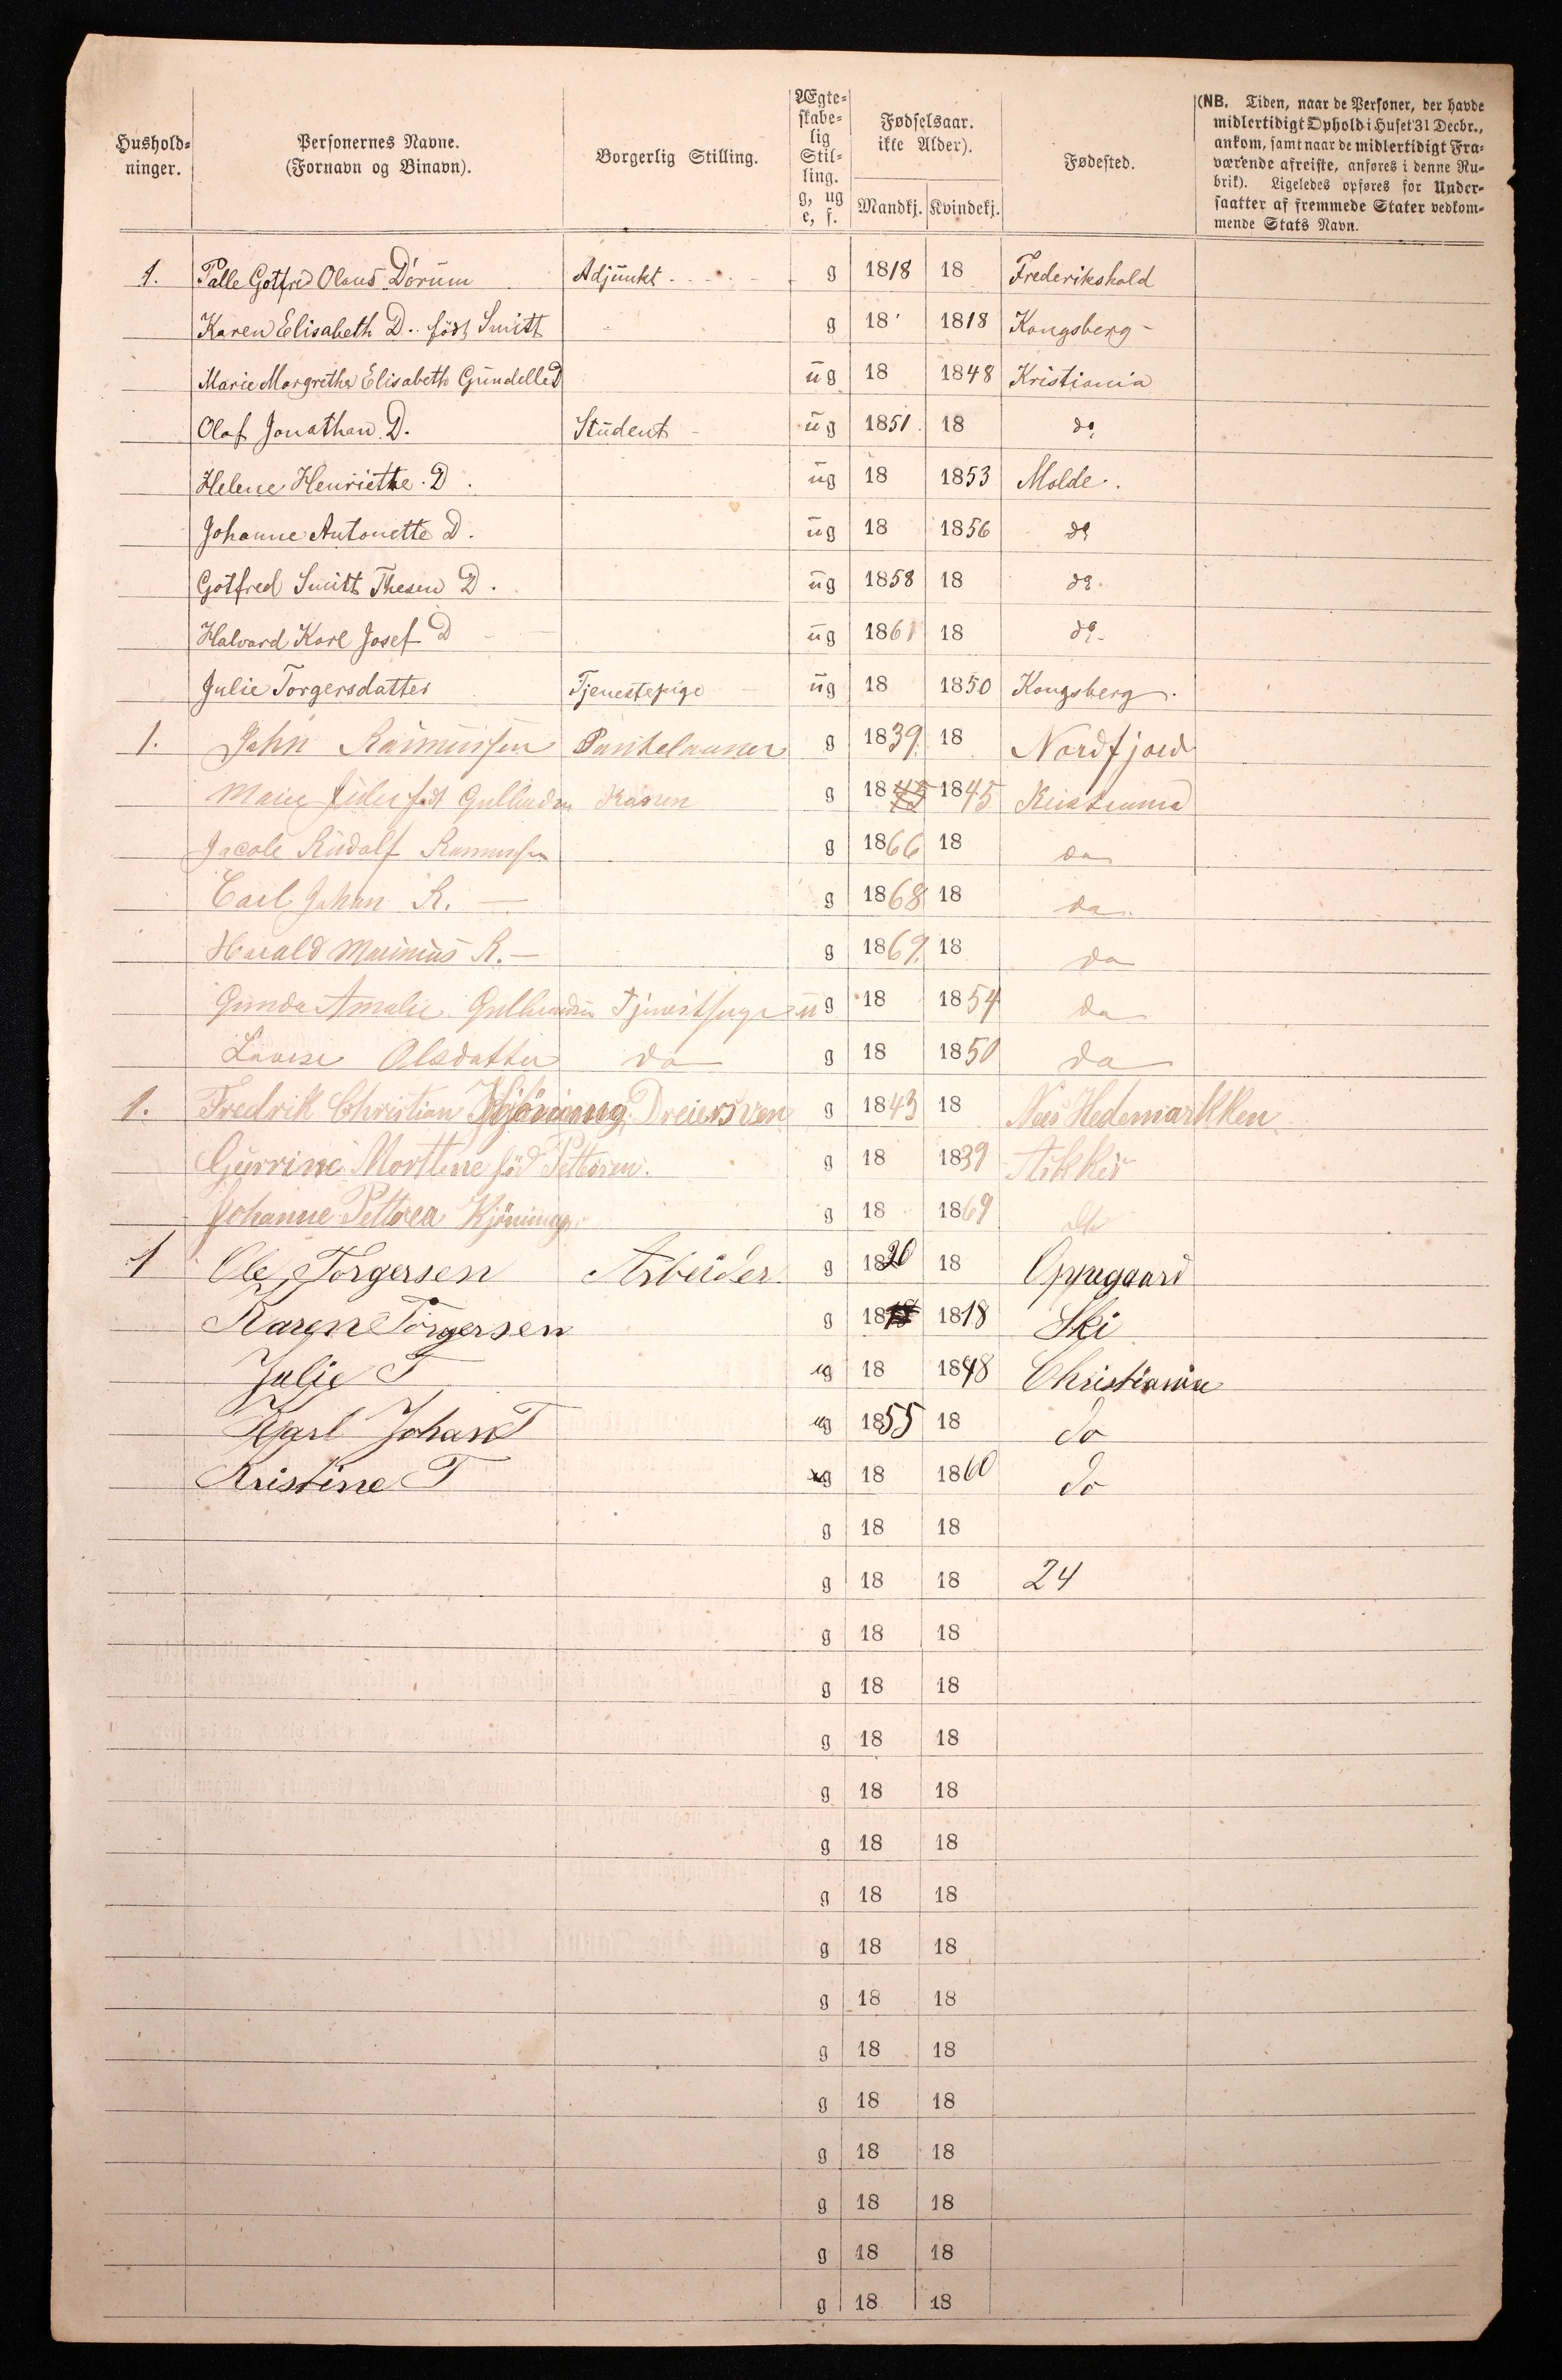 Hushold-
ninger.
Personernes Navne.
(Fornavn og Binavn).
Borgerlig Stilling.
Ægte-
skabe-
lig
Stil-
ling.
g, ug
e, f.
Fødselsaar.
ikke Alder).
Mandkj. Kvindekj.
Fødested.
(NB. Tiden, naar de Personer, der havde
midlertidigt Ophold i Huset 31 Decbr.,
ankom, samt naar de midlertidigt Fra-
værende afreiste, anføres i denne Ru-
brik). Ligeledes opføres for Under-
saatter af fremmede Stater vedkom-
mende Stats Navn.
1. Palle Gotfred Olaus Dørum Adjunkt g 1818 18 Frederikshald
Karen Elisabeth D. født Smitt g 18 1818 Kongsberg
Marie Margrethe Elisabeth Gundelle D ug 18 1848 Kristiania
Olaf Jonathan D. Student ug 1851 18 do
Helene Henriette D. ug 18 1853 Molde.
Johanne Antonette D. ug 18 1856 do
Gotfred Smitt Thesen D. ug 1858 18 do
Halvard Karl Josef D ug 1861 18 do
Julie Torgersdatter Tjenestepige ug 18 1850 Kongsberg.
1. John Rasmussen g 1839. 18 Nordfjord
Marie Julie født Gulbrandsen Konen g 1845 1845 Kristiania
Jacob Rudolf Rasmussen g 1866 18 do
Carl Johan R. — g 1868 18 do
Harald Marinius R. — g 1869. 18 do
Gunda Amalie Gulbrandsen Tjenestpige ug 18 1854 do
Lovise Olsdatter do g 18 1850 do
1. Fredrik Christian Kjøning Dreiersven g 1843 18 Nes Hedemarkken
Gurrine Morttine fød Pettersen. g 18 1839 Akker
Johanne Pettrea Kjøning g 18 1869
1 Ole Torgersen Arbeider g 1820 18 Oppegaard
Karen Torgersen g 18 1818 Ski
Julie T ug 18 1848 Christiania
Karl Johan T ug 1855 18 do
Kristine T ug 18 1860 do
g 18 18
g 18 18 24
g 18 18
g 18 18
g 18 18
g 18 18
g 18 18
g 18 18
g 18 18
g 18 18
g 18 18
g 18 18
g 18 18
g 18 18
g 18 18
g 18 18